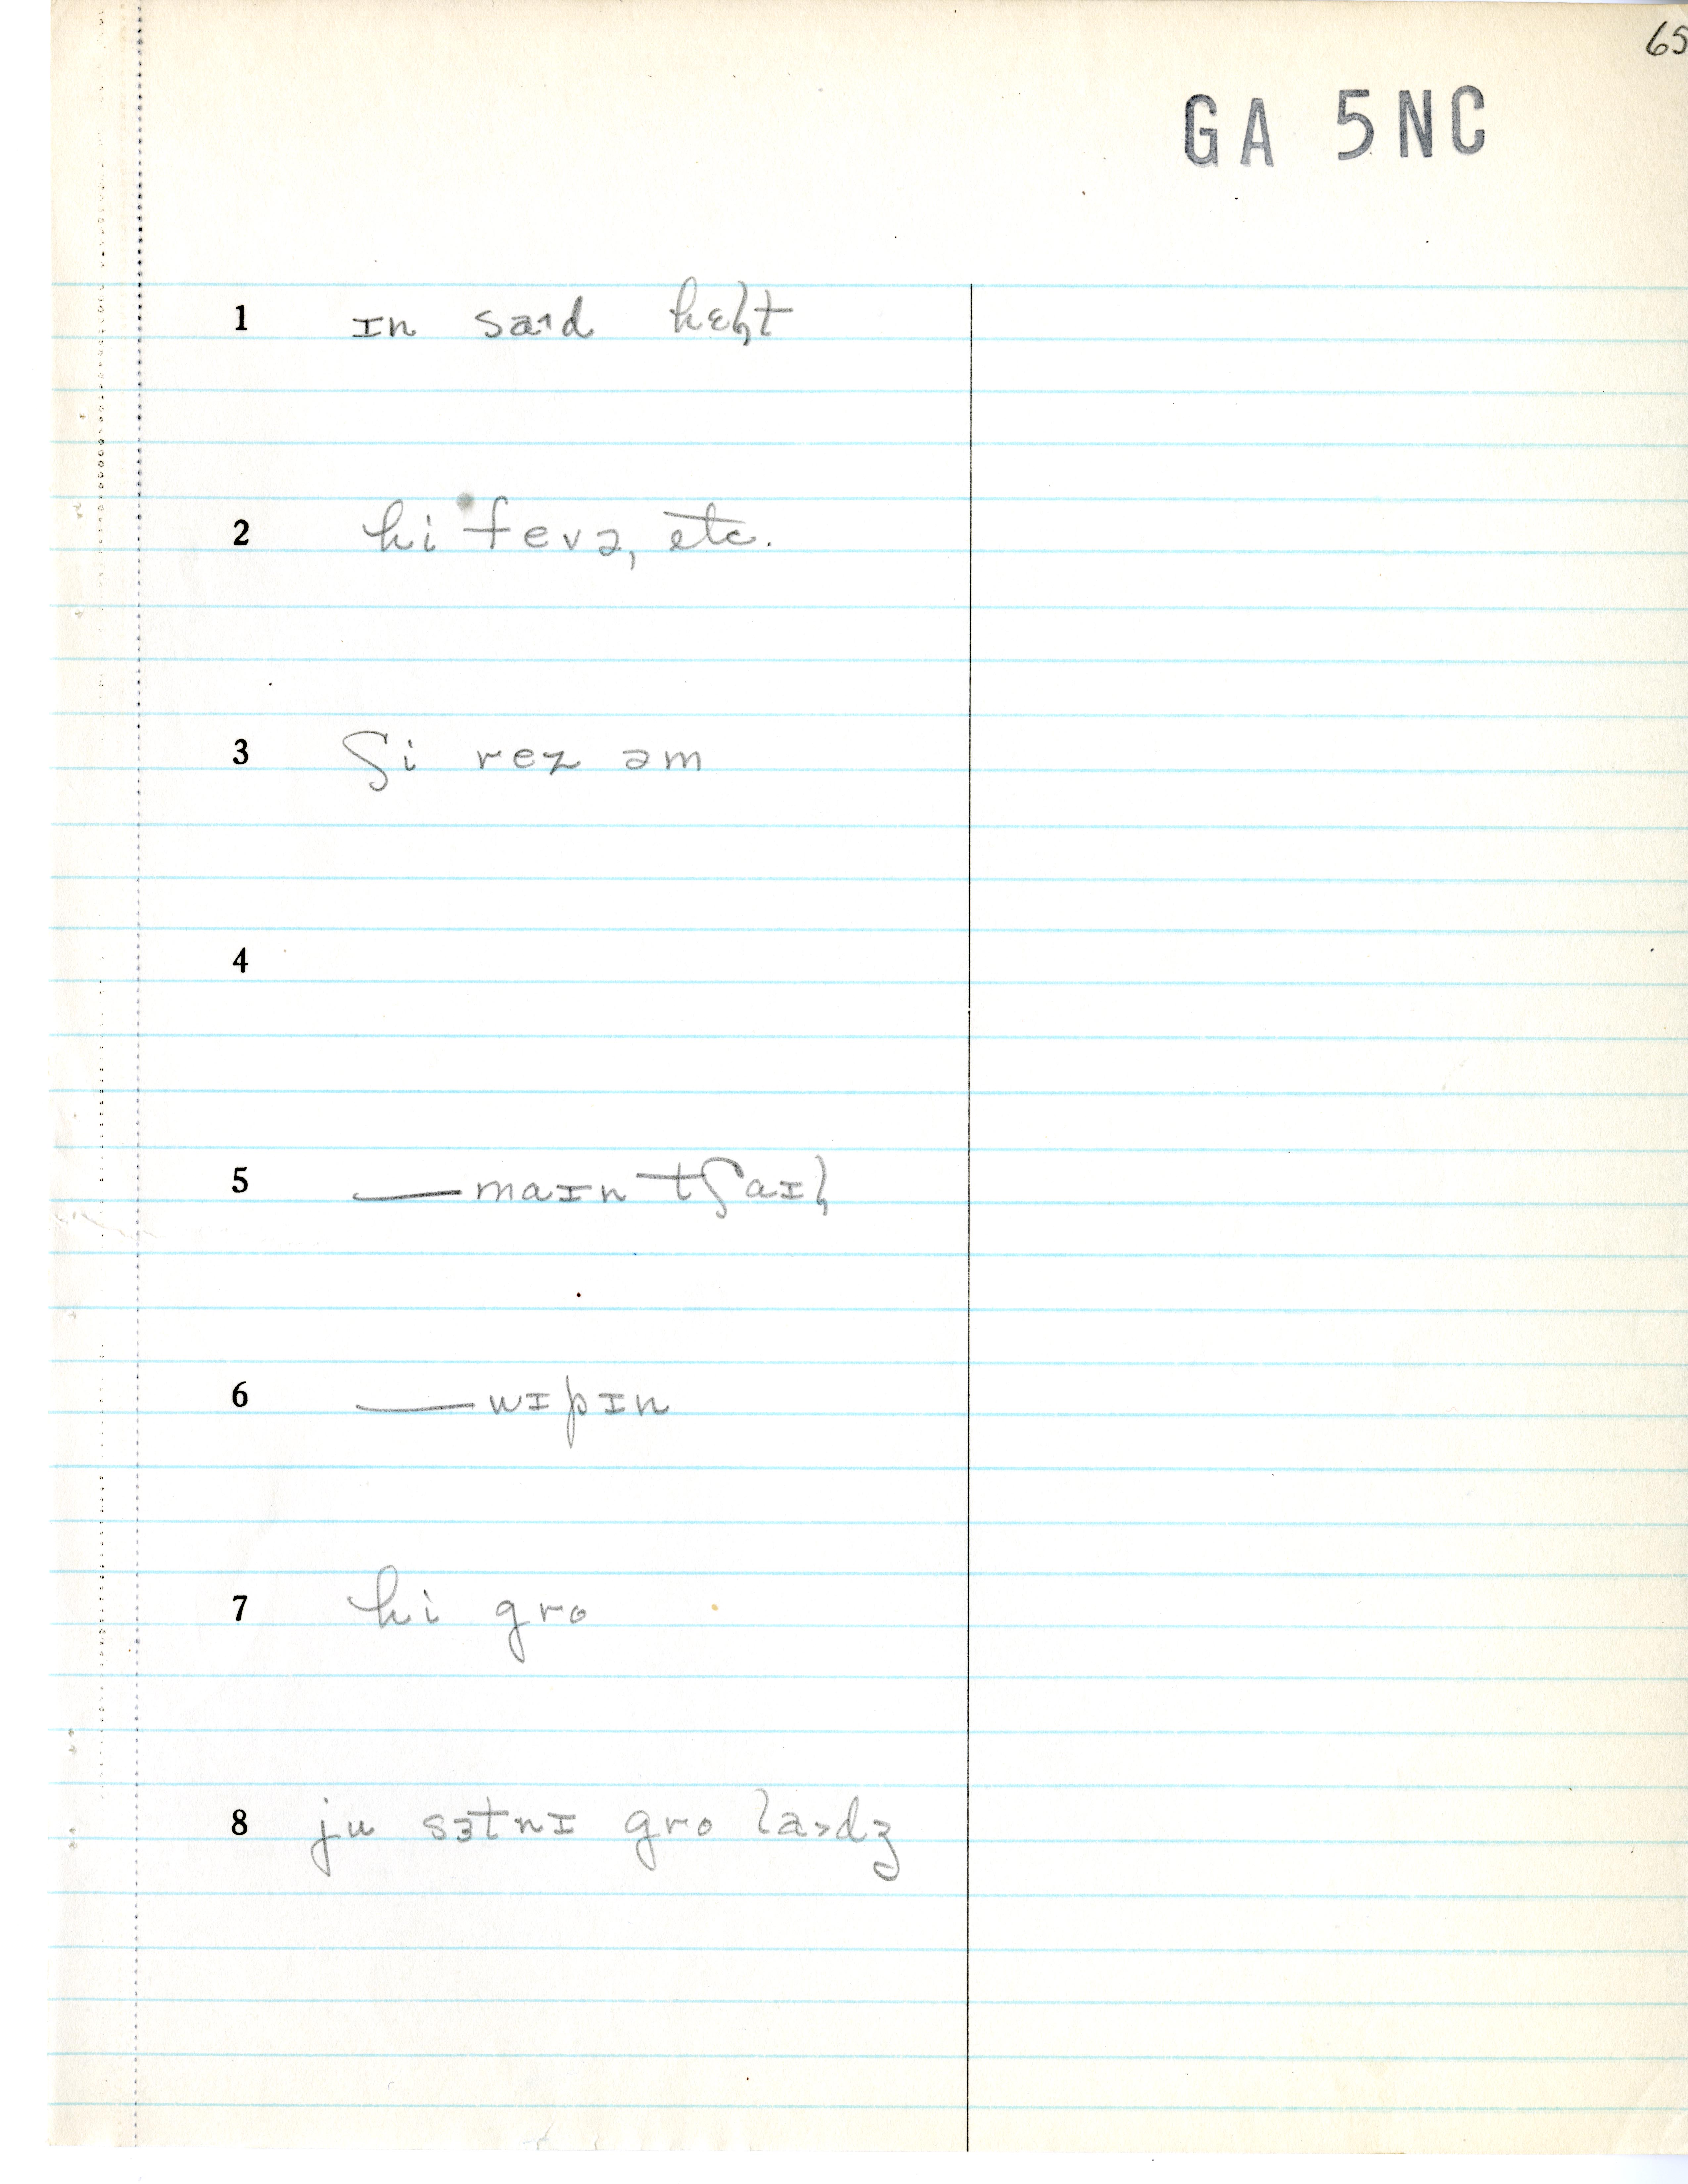 65
GA 5NC
1 ɪn saɪd hɛɫt
2 hi fevə, etc.
3 ʃi rez əm
4
5 —maɪn tʃaɪɫ
6 —wɪpɪn
7 hi gro
8 ju sɜtnɪ gro laɚdʒ